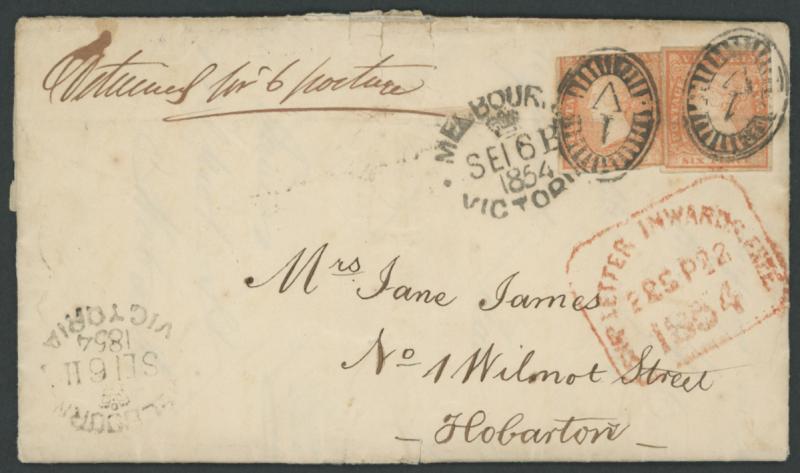 Returned for 6 postage
MELBOURNE
SE 16 B
1854
VICTORIA
1 V
1 V
SIX
SHIP LETTER INWARDS FREE
SP 22
1854
Mrs Jane James
No 1 Wilmot Street
Hobarton
MELBOURNE
SE 16 11
1854
VICTORIA